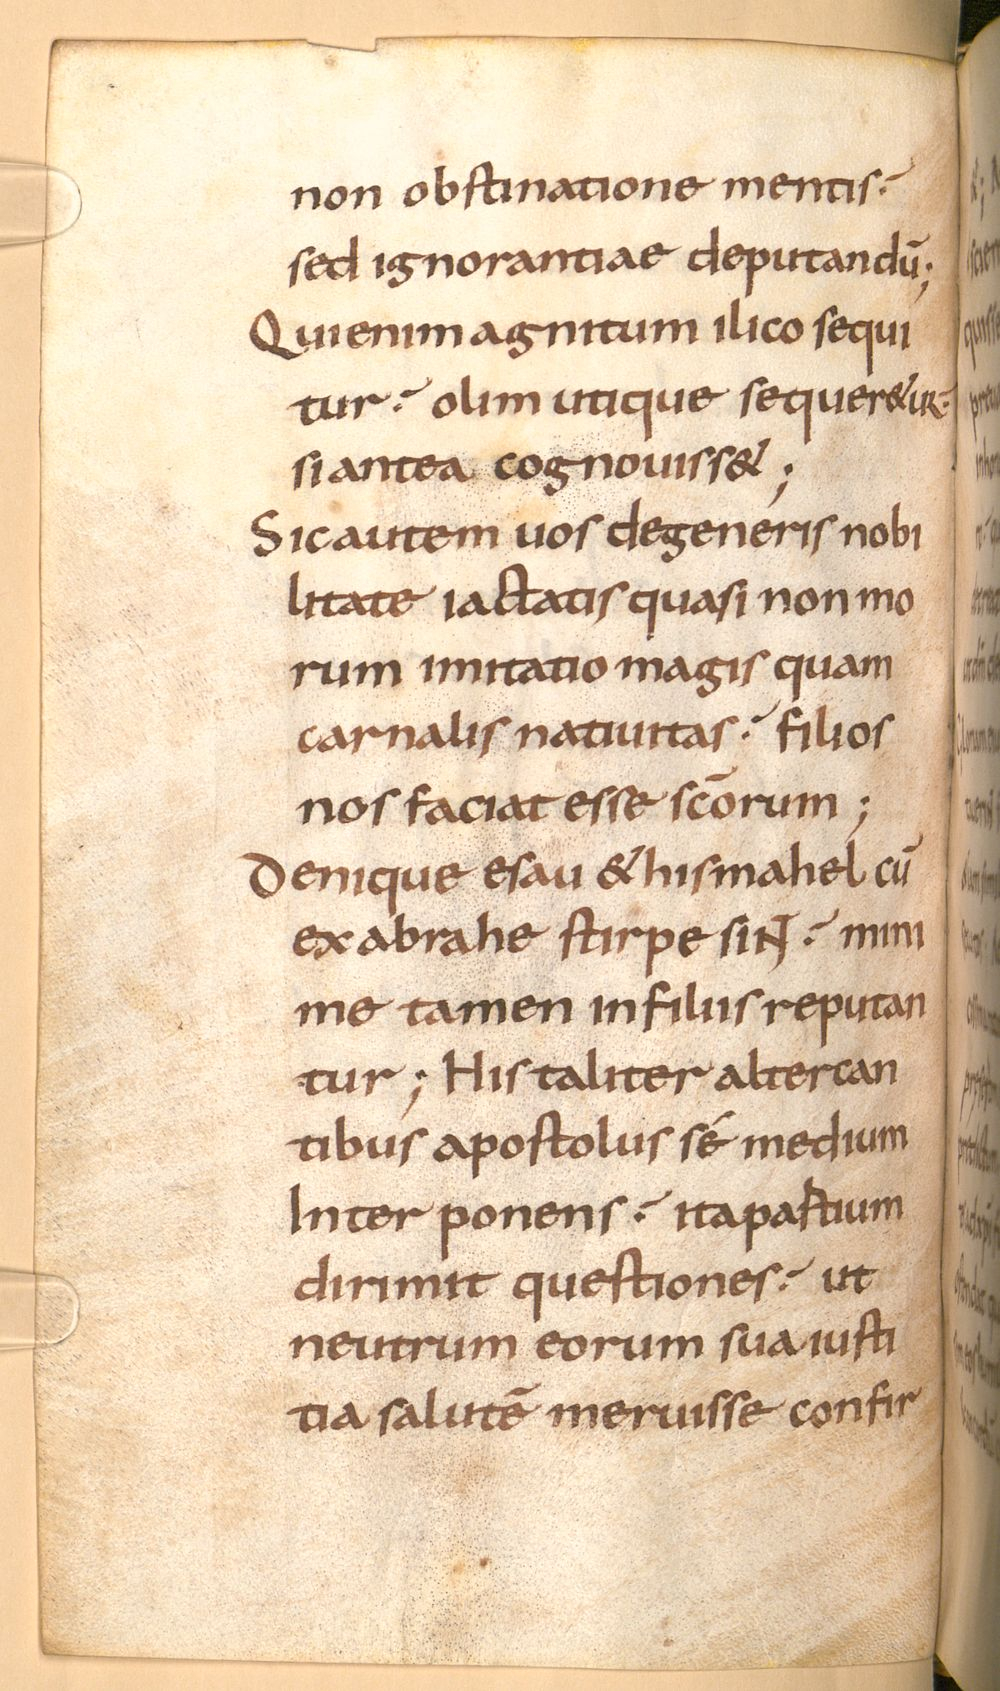 non obstinatione mentis·
sed ignorantiae deputandū;
Qui enim agnitum ilico sequi
tur· olim utique sequer&ur·
si antea cognouiss&;
Sic autem uos degeneris nobi
litate iactatis quasi non mo
rum imitatio magis quam
carnalis natiuitas· filios
nos faciat esse scōrum;
Denique esau & hismahel cū
ex abrahe stirpe siNT· mini
me tamen in filiis reputan
tur; His taliter altercan
tibus apostolus sé medium
Inter ponens· ita partium
dirimit questiones· ut
neutrum eorum sua iusti
tia salutē meruisse confir